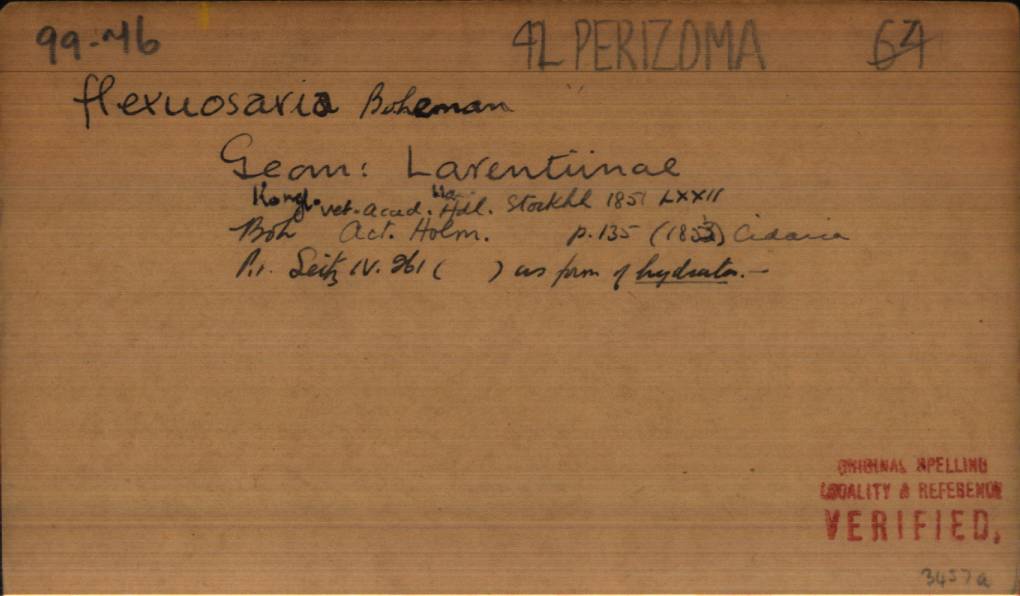 99-46 42 PERIZOMA 64
flexuosaria Boheman
Geom: Larentiinae
Kongl. vet. acad. Ha. Hdl. Stockhl 1851 LXXII
Boh Act. Holm. p. 135 (1853) Cidaria
Pr. Seitz IV. 261 ( ) as form of hydrata. —
ORIGINAL SPELLING
LOCALITY & REFERENCE
VERIFIED.
3457a